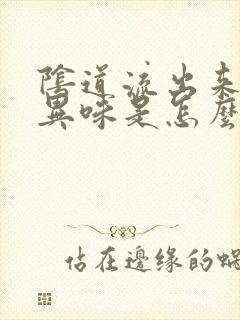 陰道流出来
異味是怎麼
佔在邊緣的蝸